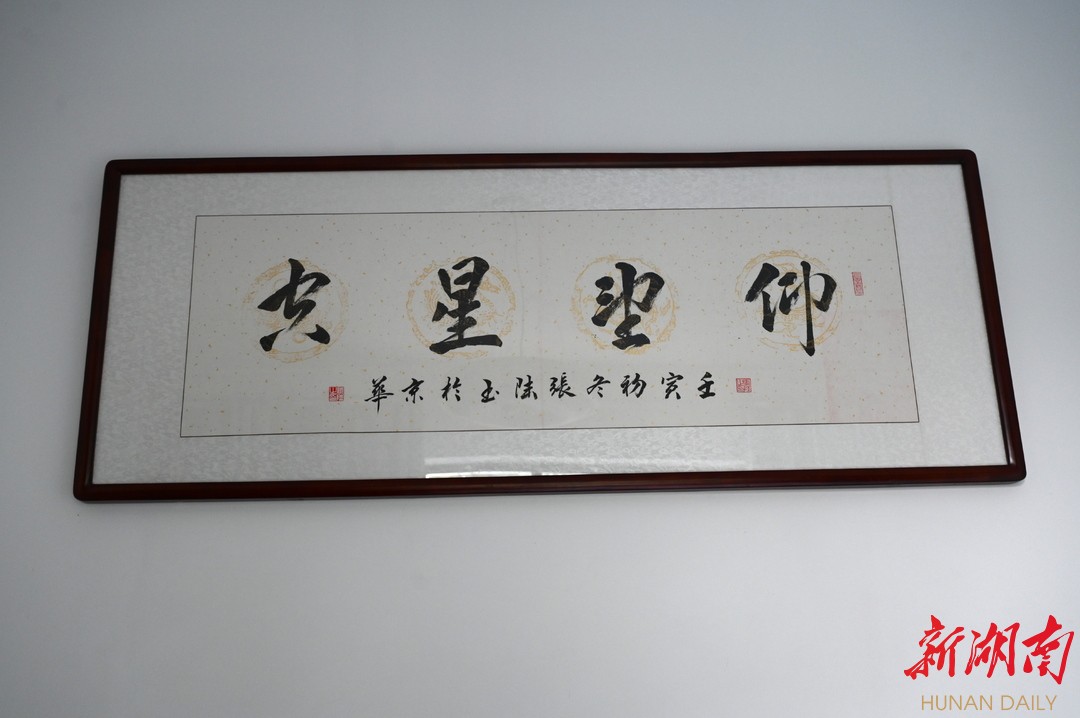 仰望星空
壬寅初冬張陸玉於京華
新湖南
HUNAN DAILY